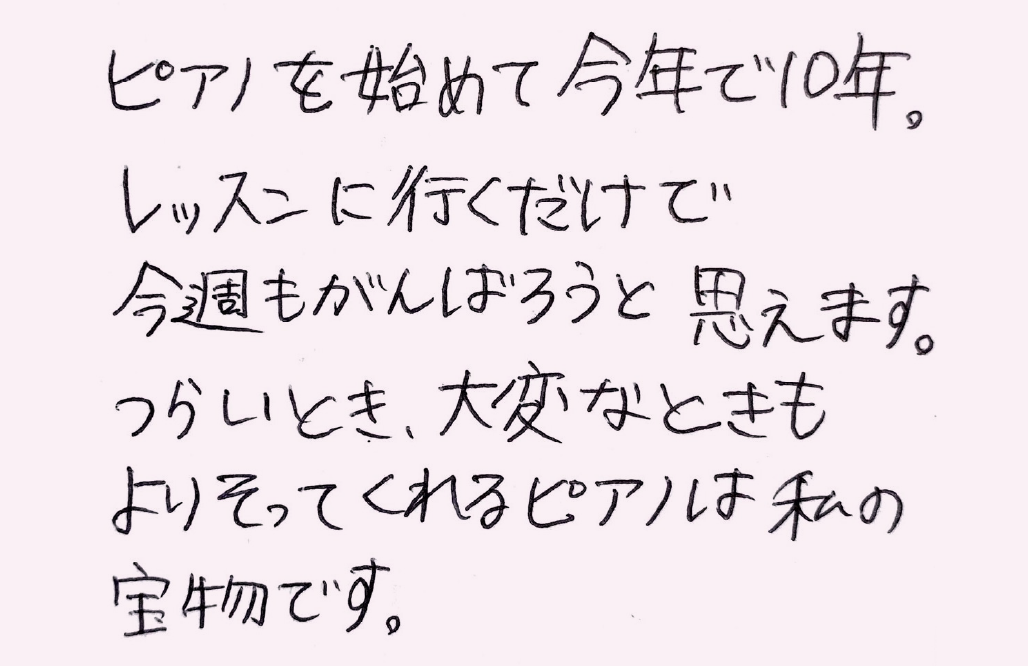 ピアノを始めて今年で10年。
レッスンに行くだけで
今週もがんばろうと思えます。
つらいとき、大変なときも
よりそってくれるピアノは私の
宝物です。